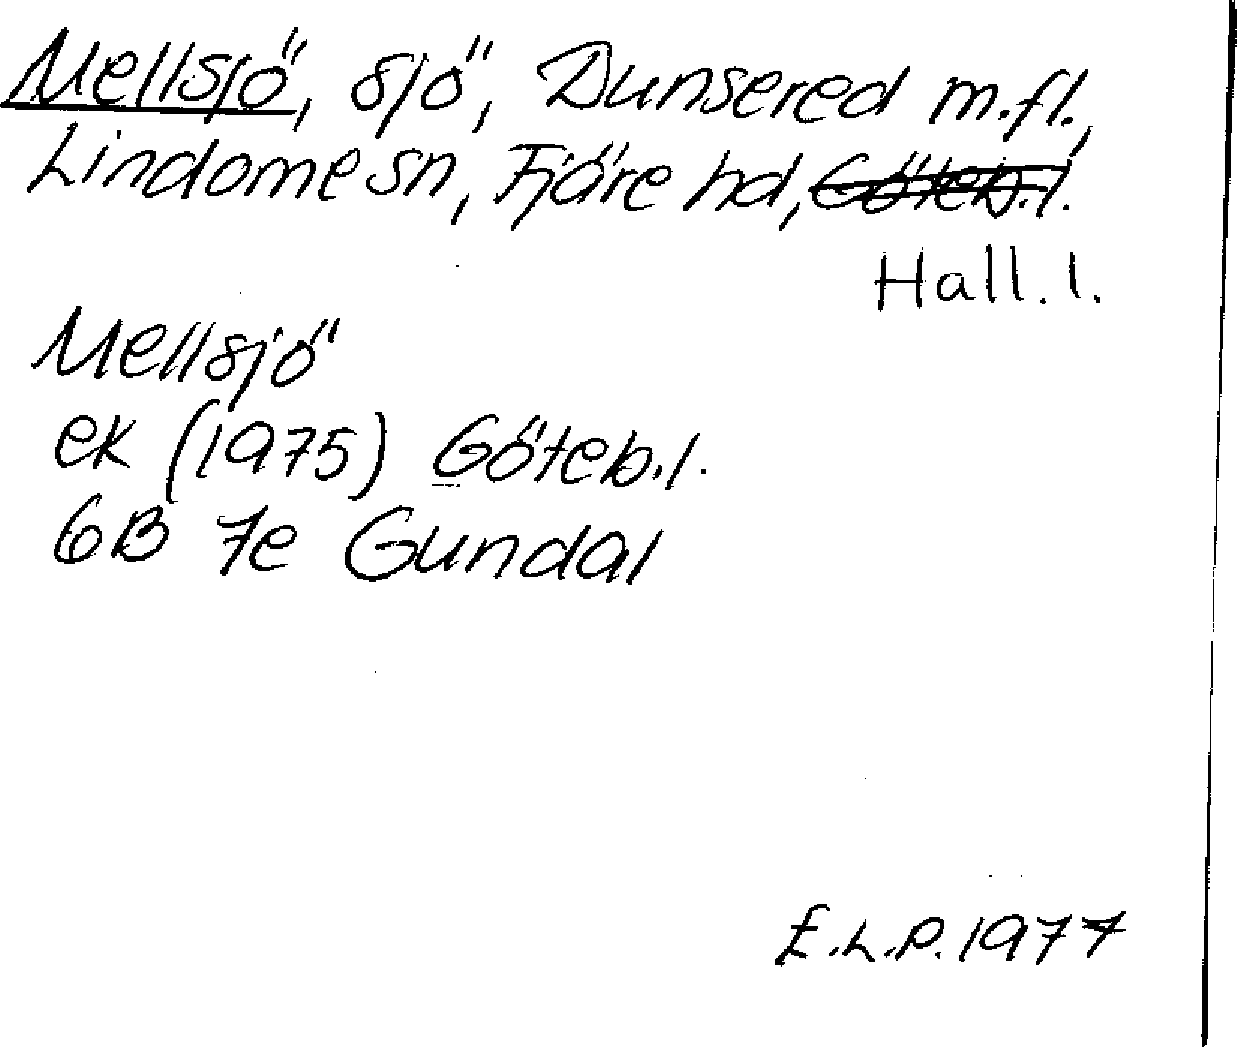 Mellsjö, sjö, Dunsered m.fl.,
Lindome sn, Fjäre hd, Göteb.l.
Hall. l.
Mellsjö
ek (1975) Göteb.l.
6B 7e Gundal
E.L.P. 1977